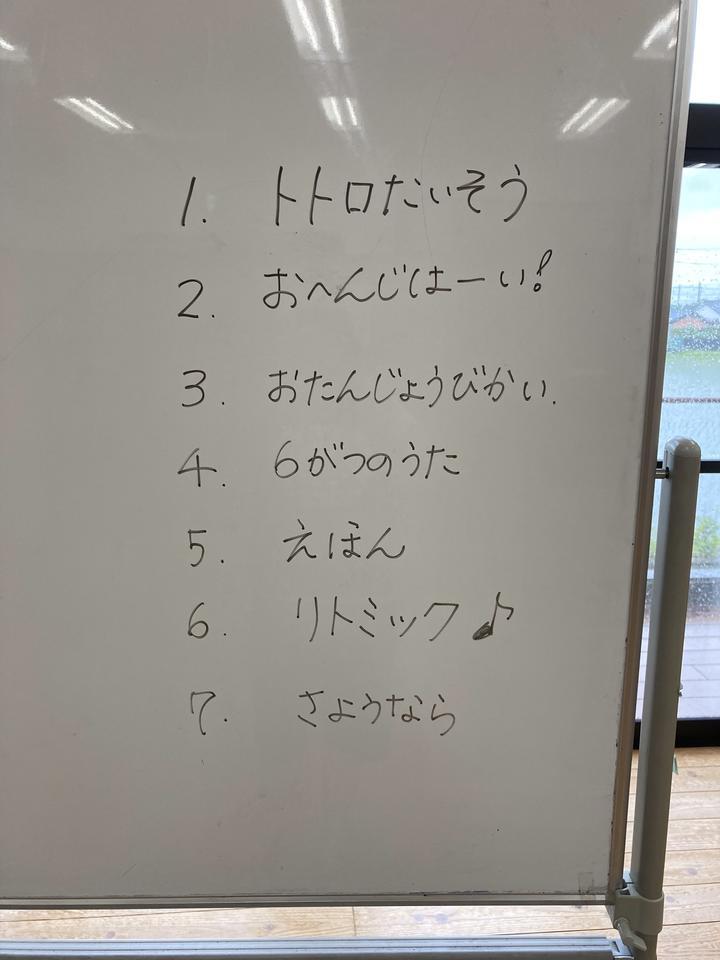 1. トトロたいそう
2. おへんじはーい!
3. おたんじょうびかい.
4. 6がつのうた
5. えほん
6. リトミック♪
7. さようなら